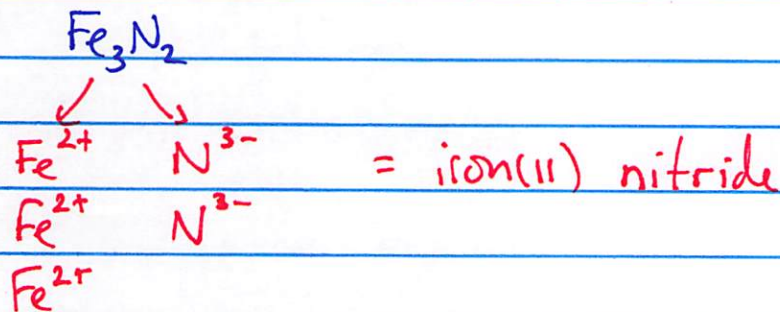 Fe₃N₂
Fe²⁺ N³⁻ = iron(II) nitride
Fe²⁺ N³⁻
Fe²⁺